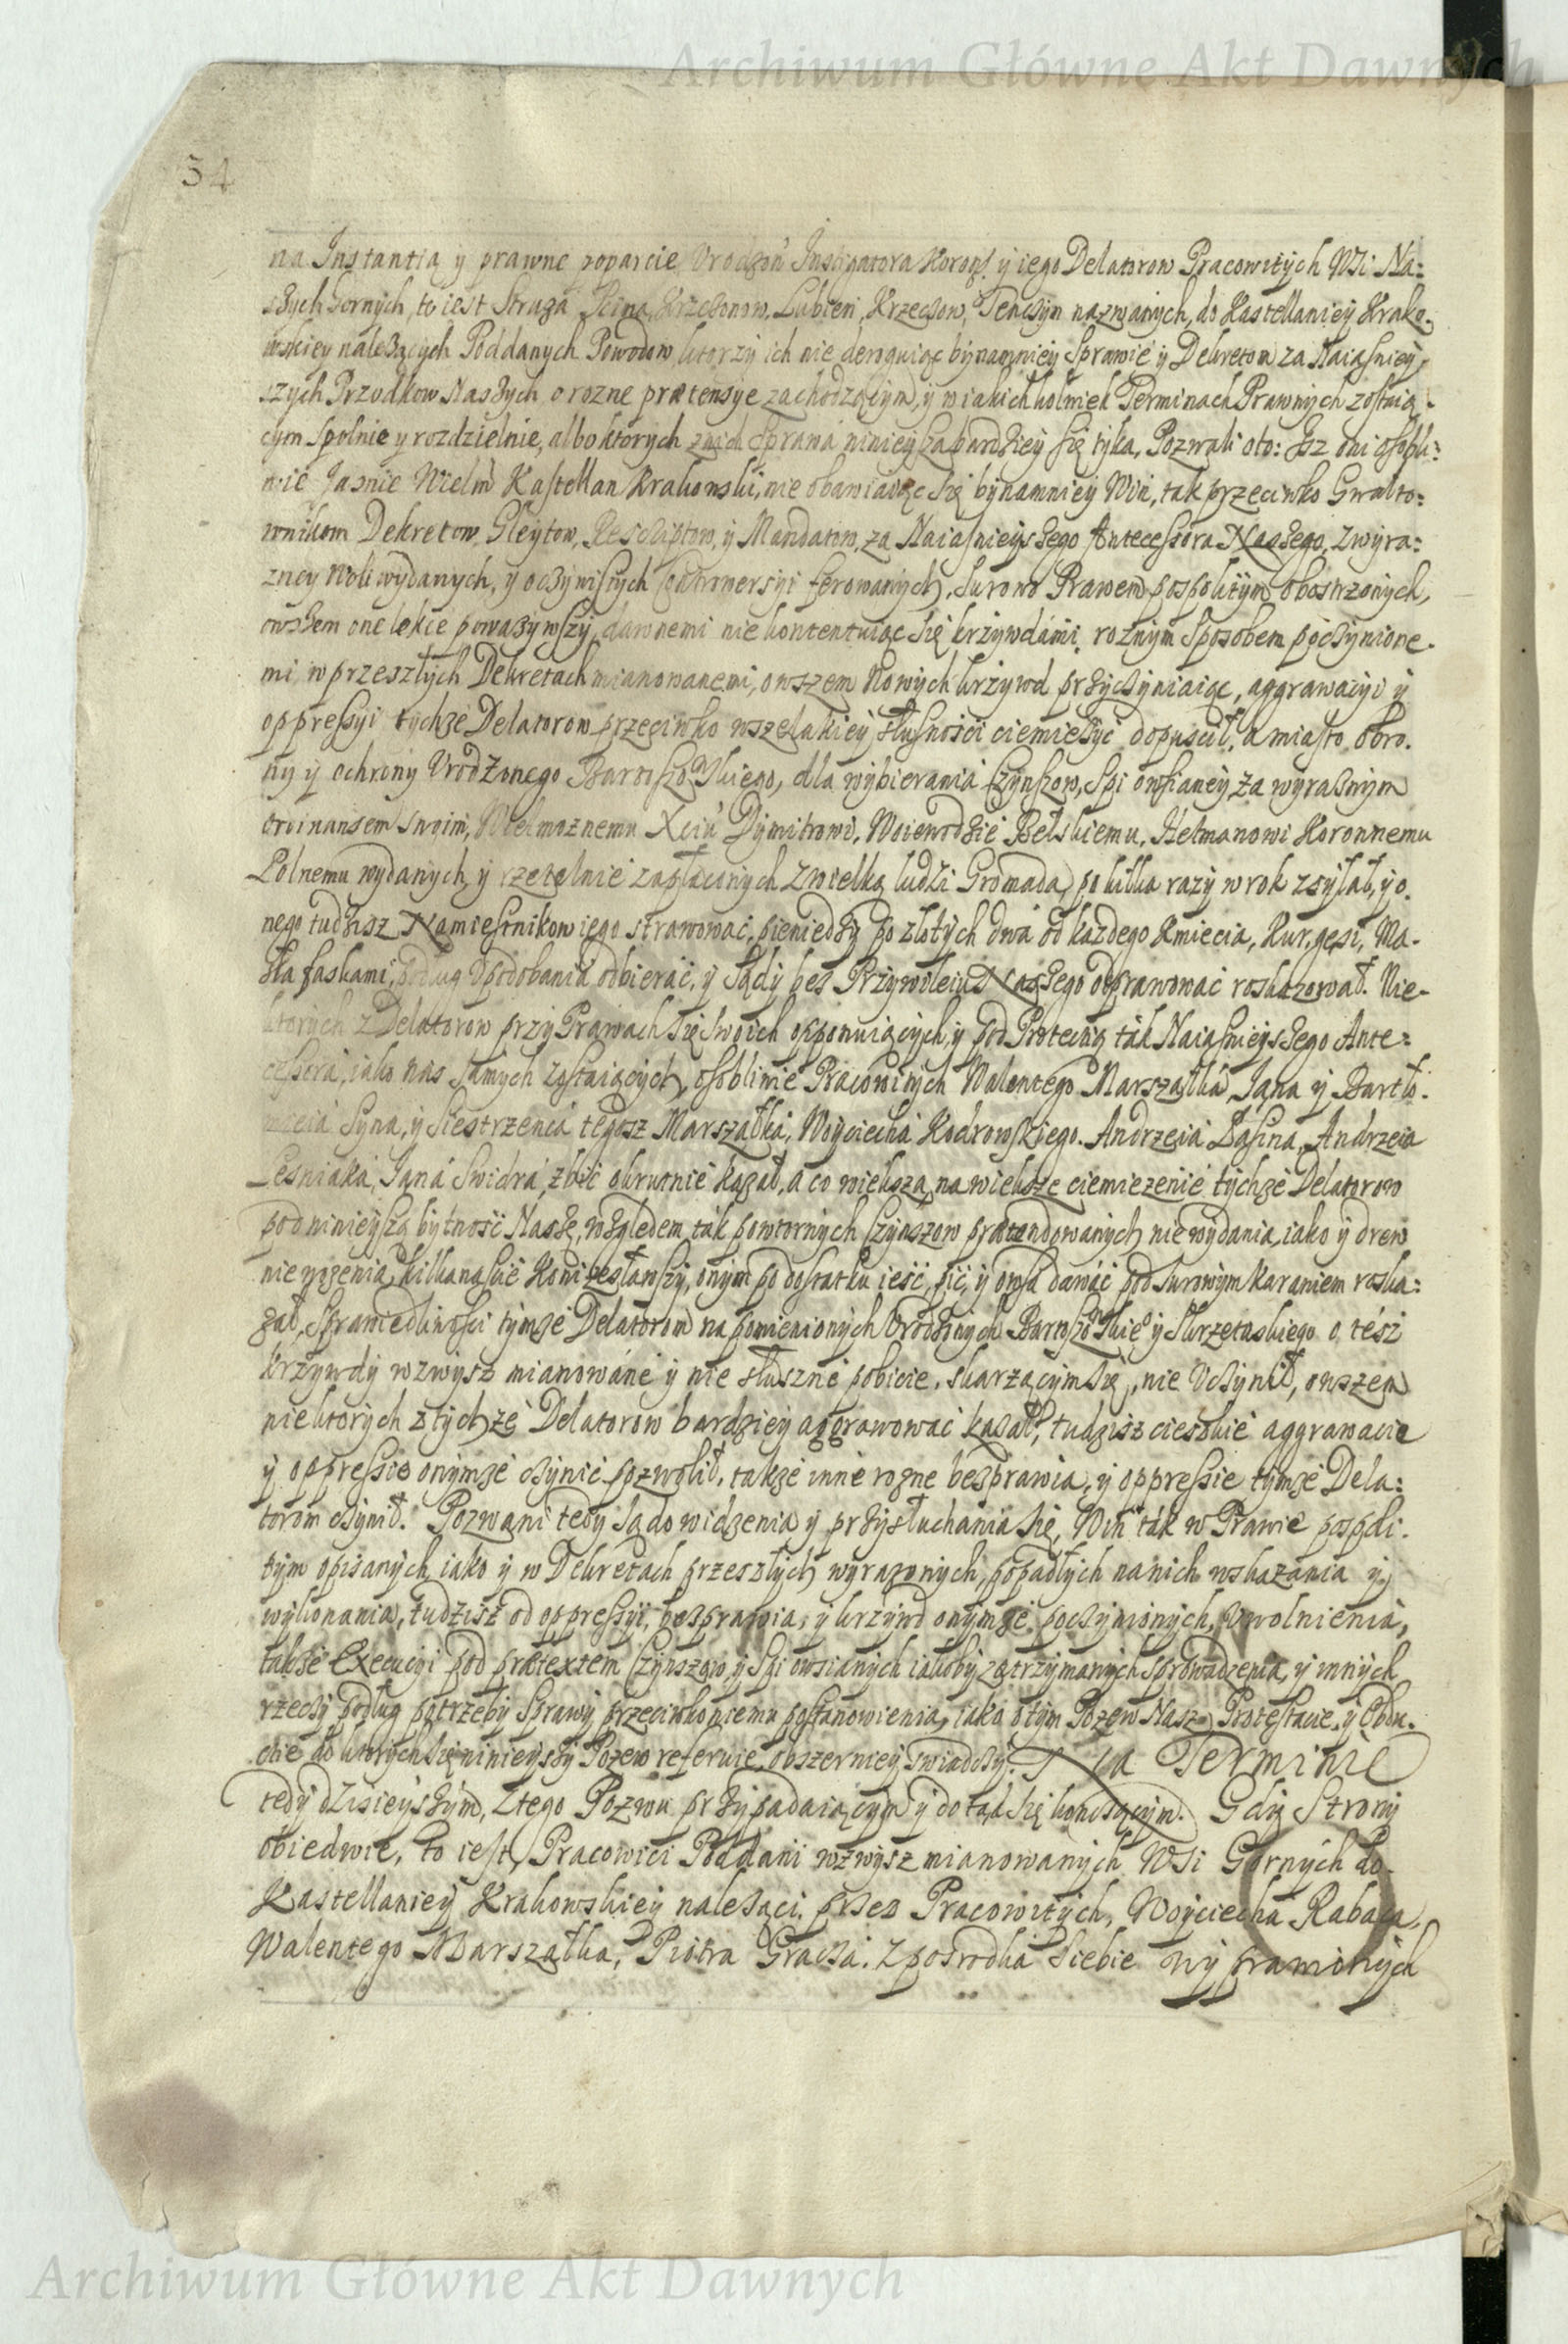 Archiwum Główne Akt Dawnych
34
na Instantią y prawne poparcie Urodzoń Instigatora Koroń y iego Delatorow Pracowitych Wsi Na:
szych Gornych, to iest Straza, Pcina, Krzczonow, Lubień, Krzeczow, Tenczyn nazwanych, do Kastellaniey Krako:
wskiey należących Poddanych Powodow ktorzy ich nie deroguiąc bynamniey Sprawie y Dekretom za Naiasniey:
szych Przodkow Naszych o rozne prætensye zachodzącym, y w iakichkolwiek Terminach Prawnych zostaią:
cym spolnie y rozdzielnie, albo ktorych z nich Sprawa ninieysza bardziey się tyka, Pozwali oto: Isz oni osobli:
wie Jasnie Wielm̃ Kasztellan Krakowski, nie obawiaiąc się bynamniey Win, tak przeciwko Gwałto:
wnikom Dekretow, Gleytow, Rescriptow, y Mandatow, za Naiasnieyszego Antecessora Naszego, z wyra:
zney Woli wydanych, y oczywistych Controwersyi ferowanych, surowo Prawem pospolitym obostrzonych,
owszem one lekce powazywszy, dawnemi nie kontentuiąc się krzywdami, roznym sposobem poczynione:
mi, w przeszłych Dekretach mianowanemi, owszem Nowych krzywd przyczyniaiąc, aggrawacyi y
oppressyi tychże Delatorow przeciwko wszelakiey słusności ciemiężyć dopuscił, a miasto obro:
ny y ochrony Urodzonego Bartoszowskiego, dla wybierania Czynszow, Spi owsianey za wyraznym
ordinansem swoim, Wielmoznemu Xciu Dymitrowi, Woiewodzie Bełskiemu, Hetmanowi Koronnemu
Polnemu wydanych, y rzetelnie zapłaconych z wielką ludzi Gromadą po kilka razy w rok zsyłał, y o:
nego tudzisz Namiestnikow iego strawować, pieniędzy po złotych dwa od kazdego Kmiecia, Kur, gęsi, Ma:
sła faskami, podług upodobania odbierać, y Sądy bez Przywileiu Naszego odprawować roskazował. Nie:
ktorych z Delatorow przy Prawach się swoich opponuiących, y pod Protectią tak Naiasnieyszego Ante:
cessora, iako nas samych zostaiących, osobliwie Pracowitych Walentego Marszałka, Jana y Bartło:
mieia Syna, y Siestrzenca tegosz Marszałka, Woyciecha Kodrowskiego, Andrzeia Łasina, Andrzeia
Lesniaka, Jana Swidra, zbić okrutnie kazał, a co większa, na większe ciemiezenie tychże Delatorow
pod ninieyszą bytność Naszę, względem tak powtornych Czynszow prætendowanych niewydania, iako y drew
niewozenia, kilkanascie Koni zesławszy, onym po dostatku ieść, pić, y owsa dawać pod surowym karaniem roska:
zał, Sprawiedliwości tymże Delatorom na pomienionych Urodzonych Bartoszowskie° y Skrzetuskiego o tesz
krzywdy wzwysz mianowane y nie słuszne pobicie, skarzącym się, nie Uczynił, owszem
niektorych z tychże Delatorow bardziey aggrawować kazał, tudzisz cieszkie aggrawacie
y oppressie onymze czynić pozwolił, także inne rozne bezprawia, y oppressie tymże Dela:
torom czynił. Pozwani tedy są do widzenia y przysłuchania się, Win tak w Prawie pospoli:
tym opisanych, iako y w Dekretach przeszłych wyrazonych, popadłych na nich wskazania y
wykonania, tudzisz od oppressyi, bezprawia, y krzywd onymże poczynionych, Uwolnienia,
także Execucyi pod prætextem Czynszow, y Spi owsianych iakoby zatrzymanych sprowadzenia, y innych
rzeczy podług potrzeby Sprawy przeciwko niemu postanowienia, iako o tym Pozew Nasz, Protestacie, y Obdu:
ctie do ktorych się ninieyszy Pozew referuie, obszerniey swiadczy. Na Terminie
tedy dzisieyszym, z tego Pozwu przypadaiącym y dotąd się konczącym. Gdy Strony
obiedwie, to iest, Pracowici Poddani wzwysz mianowanych Wsi Gornych do
Kastellaniey Krakowskiey należąci, przez Pracowitych, Woyciecha Rabaca,
Walentego Marszałka, Piotra Gracza, z posrodka siebie wyprawionych
Archiwum Główne Akt Dawnych